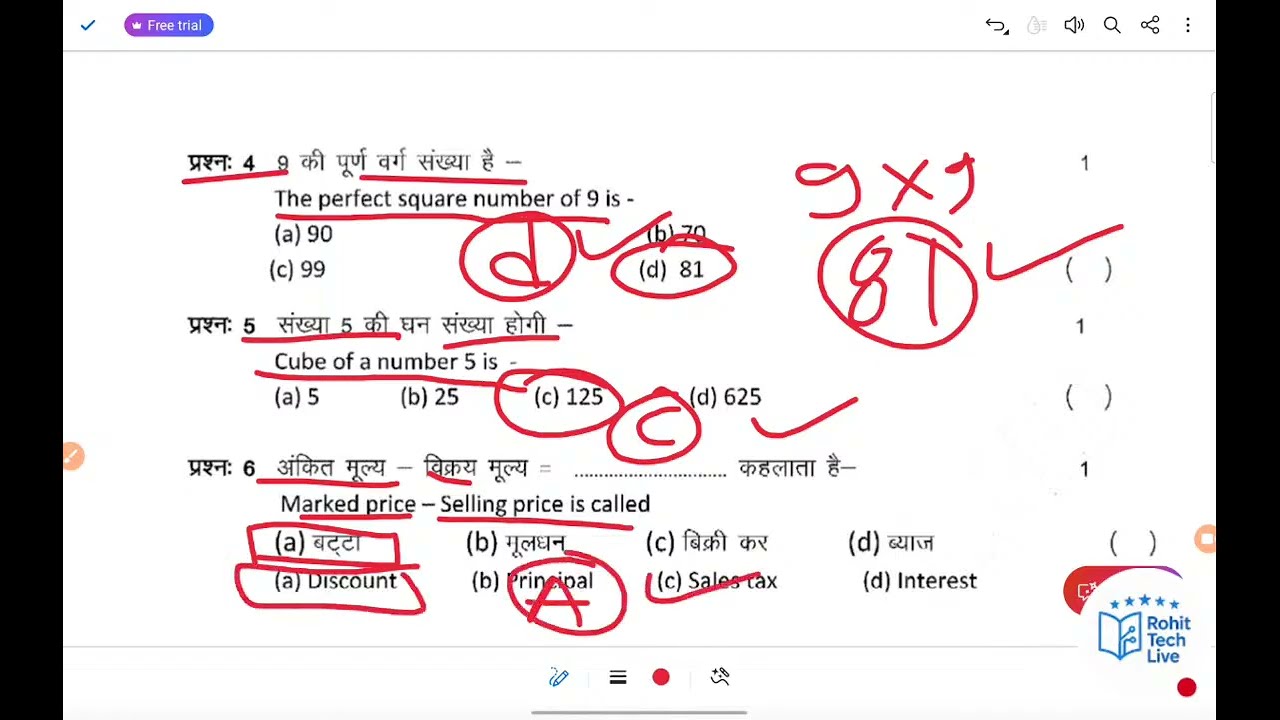 Free trial
प्रश्नः 4 9 की पूर्ण वर्ग संख्या है – 1
The perfect square number of 9 is -
(a) 90 (b) 70
(c) 99 (d) 81 ( )
d
9 × 9
81
प्रश्नः 5 संख्या 5 की घन संख्या होगी – 1
Cube of a number 5 is -
(a) 5 (b) 25 (c) 125 (d) 625 ( )
C
प्रश्नः 6 अंकित मूल्य – विक्रय मूल्य = ............................ कहलाता है– 1
Marked price – Selling price is called
(a) बट्टा (b) मूलधन (c) बिक्री कर (d) ब्याज ( )
(a) Discount (b) Principal (c) Sales tax (d) Interest
A
Rohit
Tech
Live